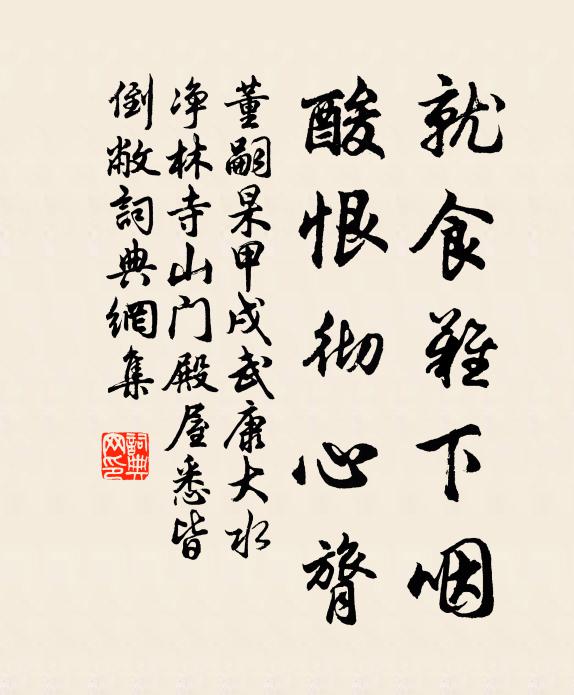 就食難下咽
酸恨彻心膂
董嗣杲甲戌武康大水
净林寺山门殿屋悉皆
倒敝詞典網集
詞典网印